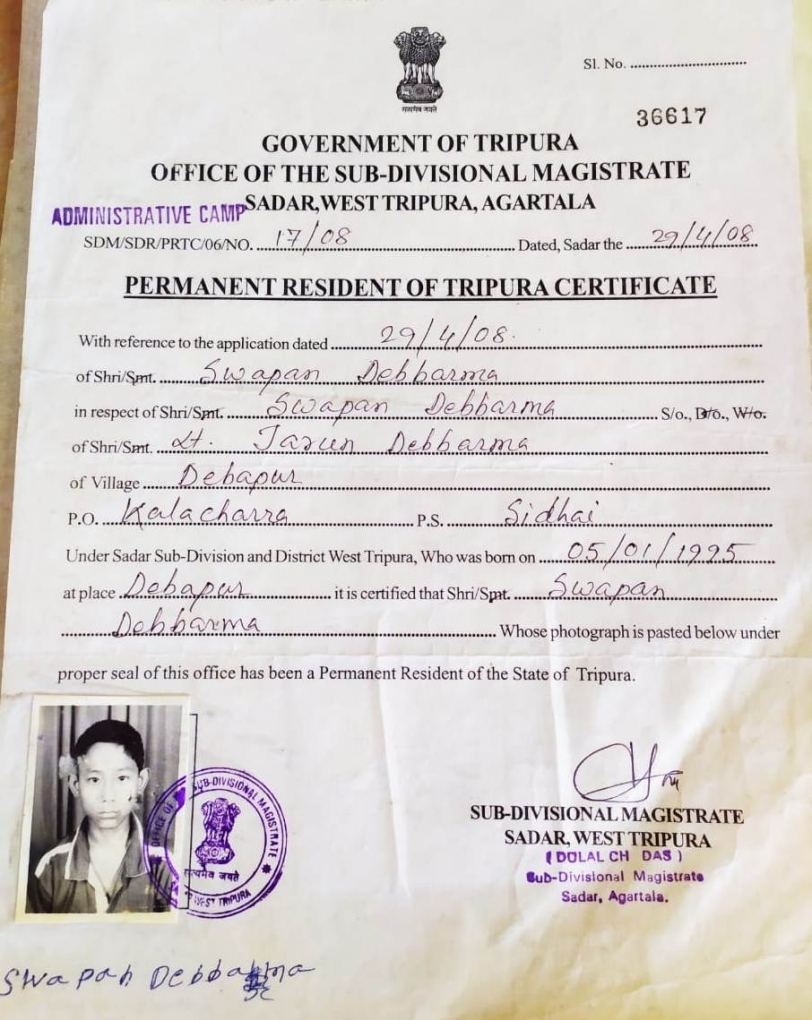 Sl. No. ..............................
36617
सत्यमेव जयते
GOVERNMENT OF TRIPURA
OFFICE OF THE SUB-DIVISIONAL MAGISTRATE
SADAR,WEST TRIPURA, AGARTALA
ADMINISTRATIVE CAMP
SDM/SDR/PRTC/06/NO. 17/08 Dated, Sadar the 29/4/08
PERMANENT RESIDENT OF TRIPURA CERTIFICATE
With reference to the application dated 29/4/08.
of Shri/Smt. Swapan Debbarma
in respect of Shri/Smt. Swapan Debbarma S/o., D/o., W/o.
of Shri/Smt. Lt. Tarun Debbarma
of Village Debapur
P.O. Kalacharra P.S. Sidhai
Under Sadar Sub-Division and District West Tripura, Who was born on 05/01/1995
at place Debapur it is certified that Shri/Smt. Swapan
Debbarma Whose photograph is pasted below under
proper seal of this office has been a Permanent Resident of the State of Tripura.
OFFICE OF SUB-DIVISIONAL MAGISTRATE
सत्यमेव जयते
WEST TRIPURA
SUB-DIVISIONAL MAGISTRATE
SADAR, WEST TRIPURA
( DULAL CH DAS )
Sub-Divisional Magistrate
Sadar, Agartala.
Swapan Debbarma